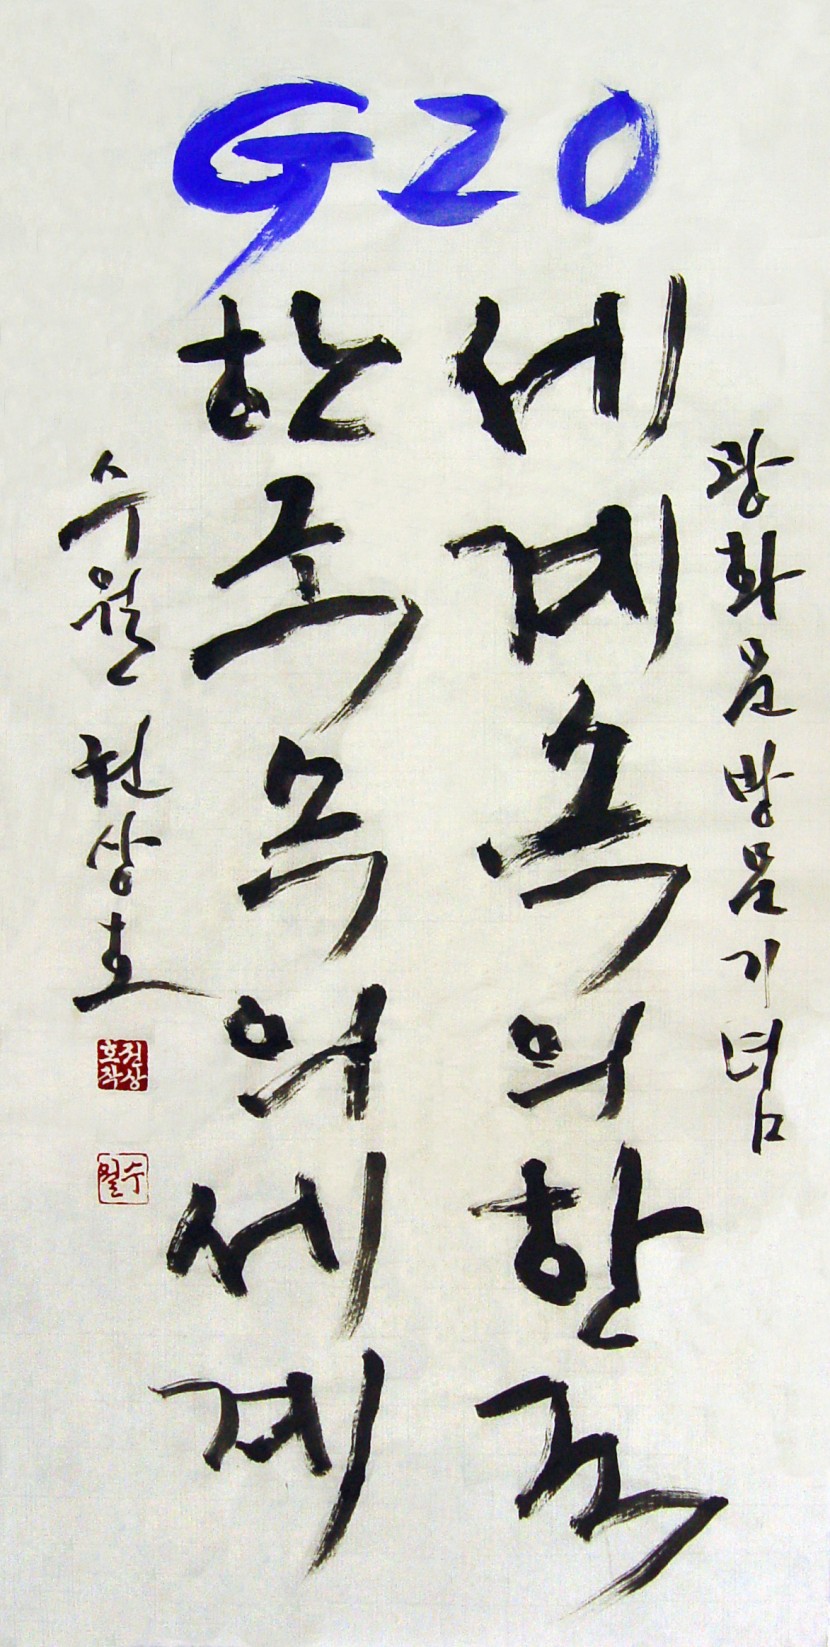 G20
광화문방문기념
세계속의한국
한국속의세계
수월 권상호
권상
호작
수월